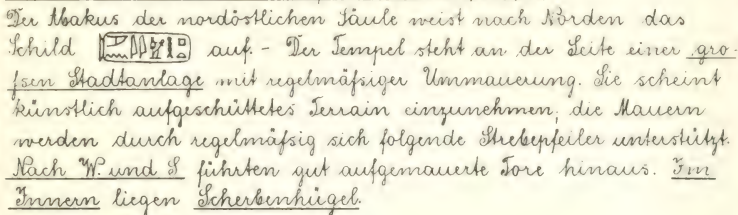 Der Abakus der nordöstlichen Säule weist nach Norden das
Schild auf. - Der Tempel steht an der Seite einer gro-
fsen Stadtanlage mit regelmäfsiger Ummauerung. Sie scheint
künstlich aufgeschüttetes Terrain einzunehmen; die Mauern
werden durch regelmäfsig sich folgende Strebepfeiler unterstützt.
Nach W. und S führten gut aufgemauerte Tore hinaus. Im
Innern liegen Scherbenhügel.